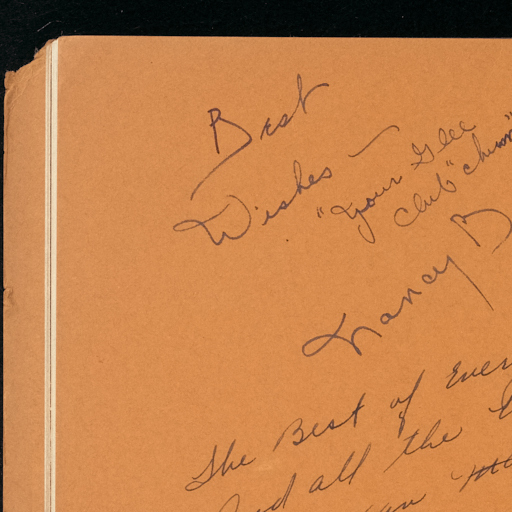 Best
Wishes —
"Your Glee
Club "chum"
Nancy
The Best of
and all the